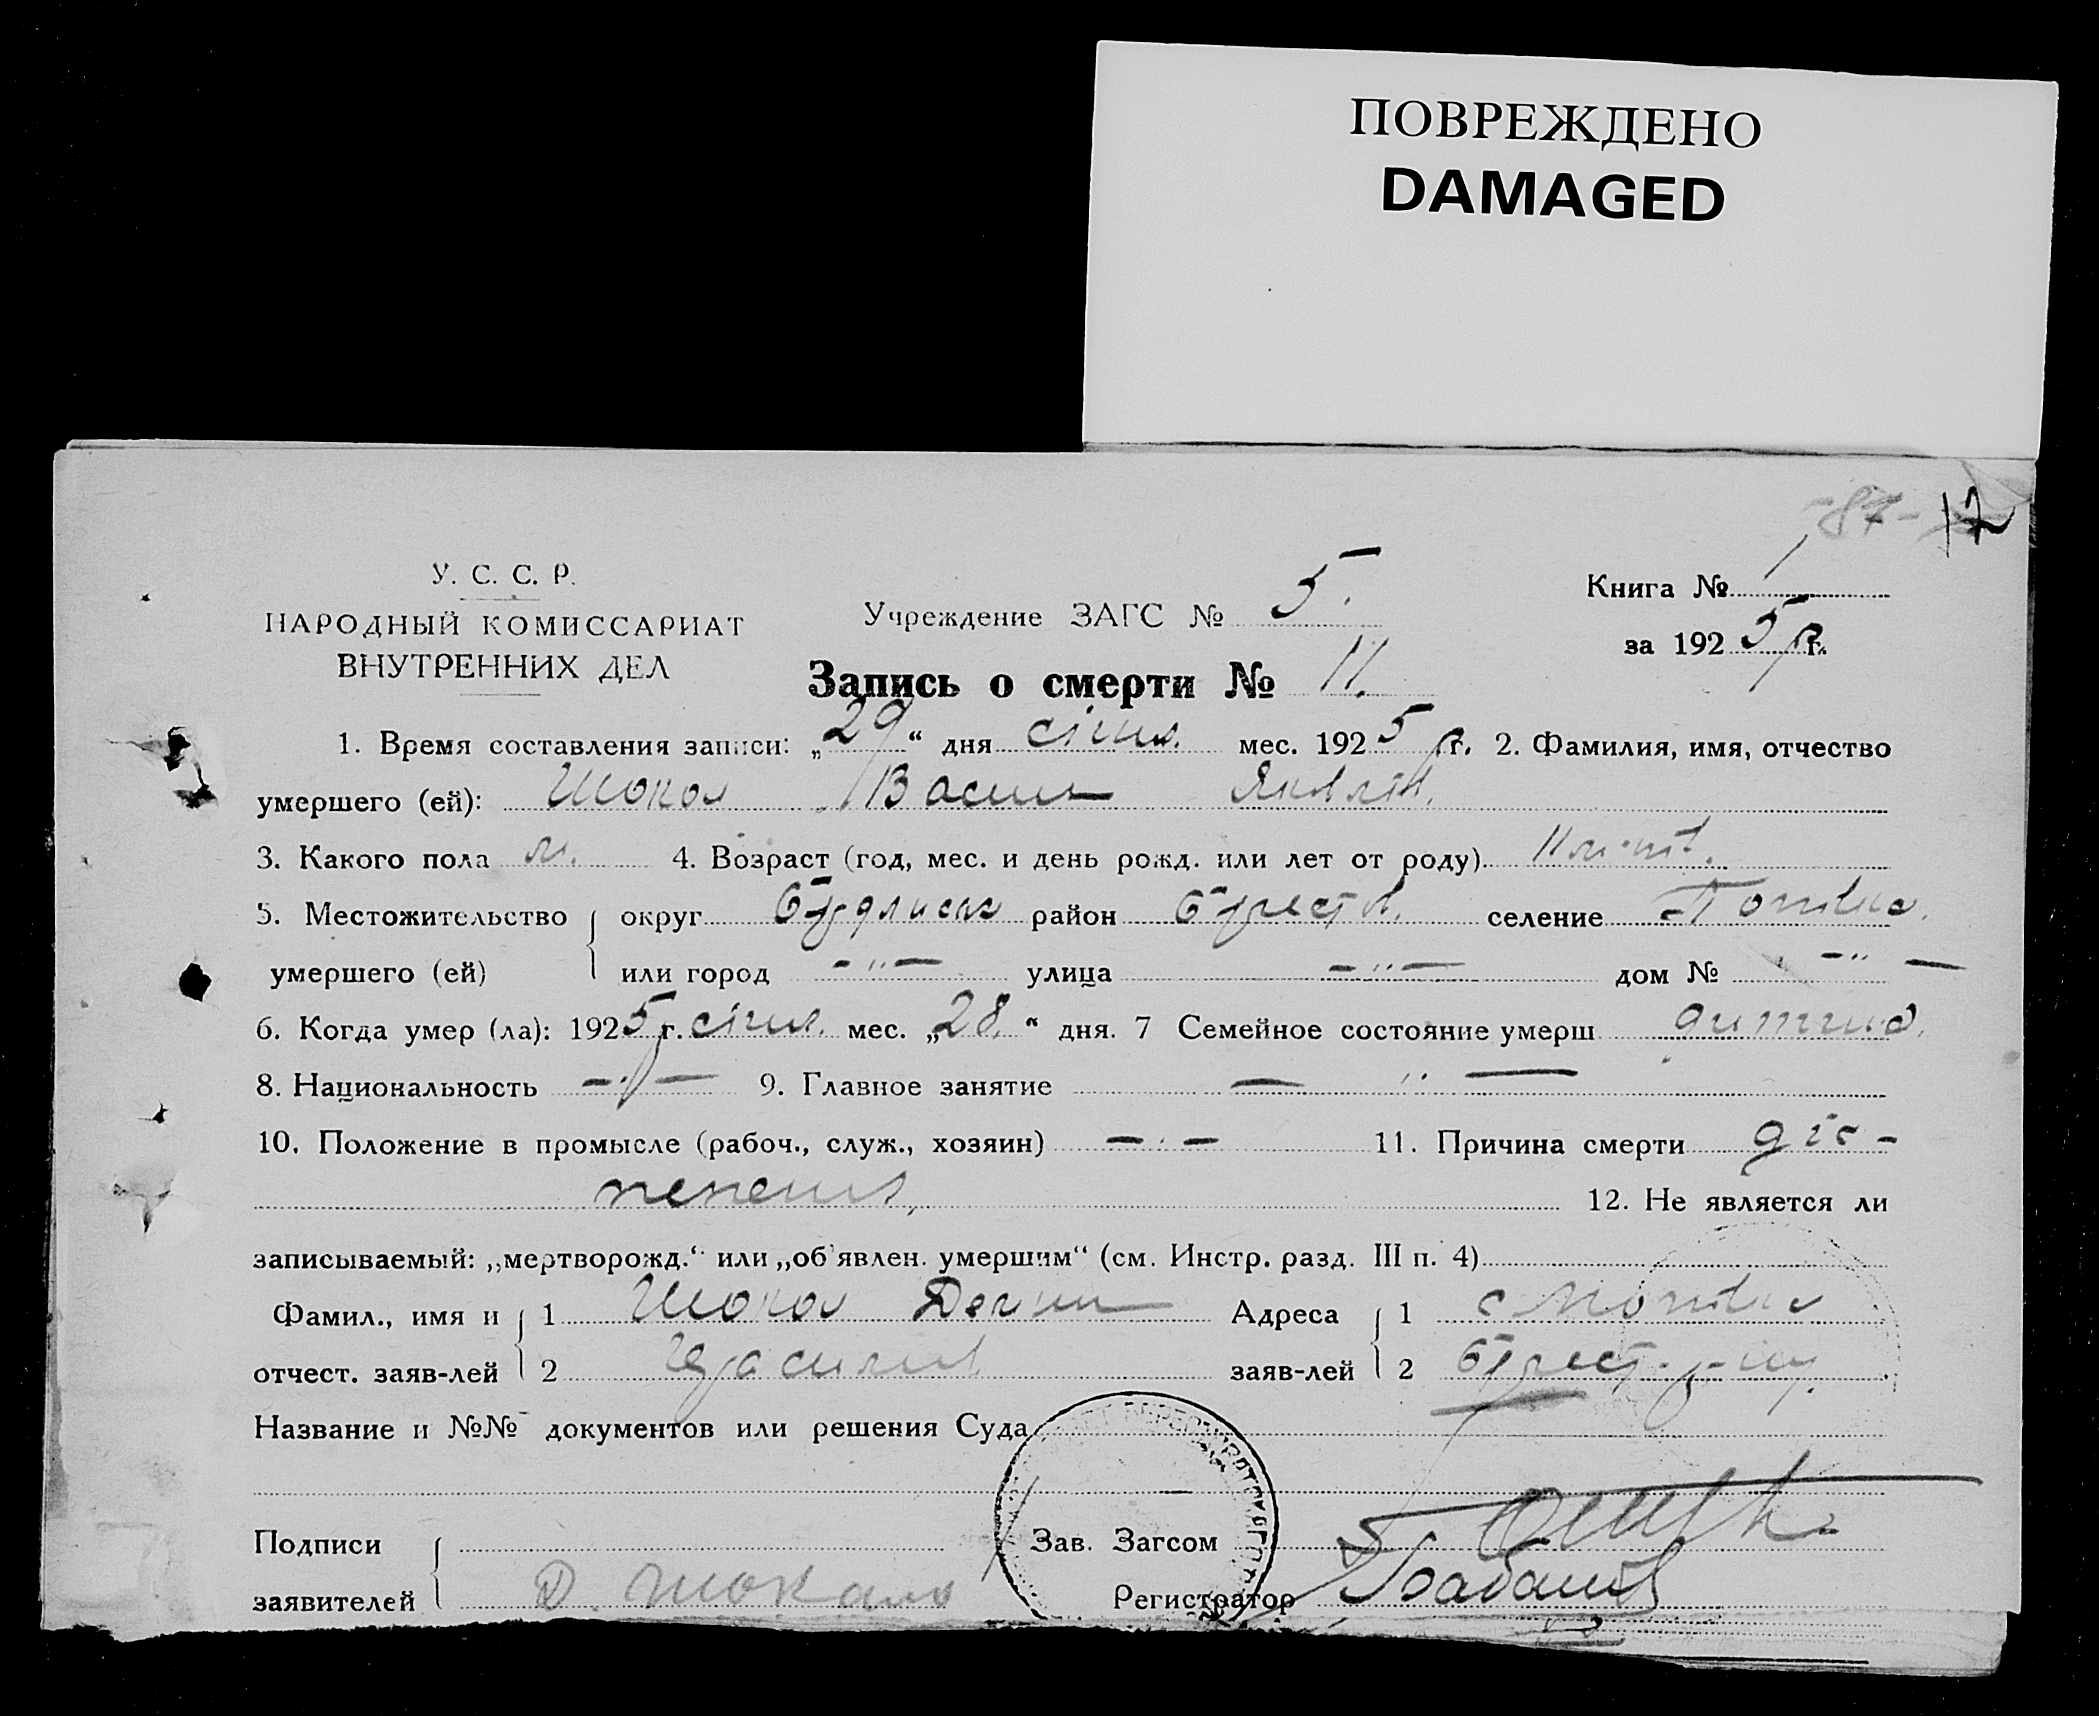 ПОВРЕЖДЕНО
DAMAGED
-87- 12
У. С. С. Р.
НАРОДНЫЙ КОМИССАРИАТ
ВНУТРЕННИХ ДЕЛ
Учреждение ЗАГС № 5.
Книга № 1
за 1925 р г.
Запись о смерти № 11.
1. Время составления записи: „29“ дня січня. мес. 1925 р г. 2. Фамилия, имя, отчество
умершего (ей): Шокол Васил Яковлев.
3. Какого пола м. 4. Возраст (год, мес. и день рожд. или лет от роду)
5. Местожительство округ район селение
умершего (ей) или город -"- улица -"- дом № -"-
6. Когда умер (ла): 1925 р г. січня. мес. „28.“ дня. 7 Семейное состояние умерш дитина.
8. Национальность -"- 9. Главное занятие — " —
10. Положение в промысле (рабоч., служ., хозяин) -"- 11. Причина смерти діс-
пепсия,
12. Не является ли
записываемый: „мертворожд.“ или „об'явлен. умершим“ (см. Инстр. разд. III п. 4)
Фамил., имя и 1 Шокол Адреса 1 с
отчест. заяв-лей 2 заяв-лей 2
Название и №№ документов или решения Суда
Подписи Зав. Загсом
заявителей Д. Шокало Регистратор